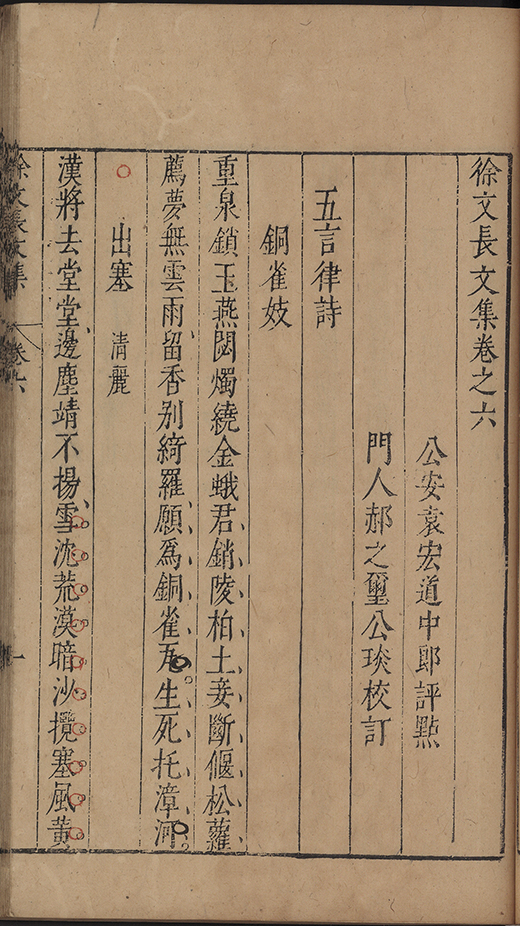 徐文長文集卷之六
公安袁宏道中郎評點
門人郝之璽公琰校訂
五言律詩
銅雀妓
重泉鎖玉燕閟燭繞金蛾君銷陵柏土妾斷偃松蘿
薦夢無雲雨留香别綺羅願爲銅雀瓦生死托漳河
出塞 清麗
漢將去堂堂邊塵靖不揚雪沈荒漠暗沙攪塞風黃
徐文長文集 卷六 一